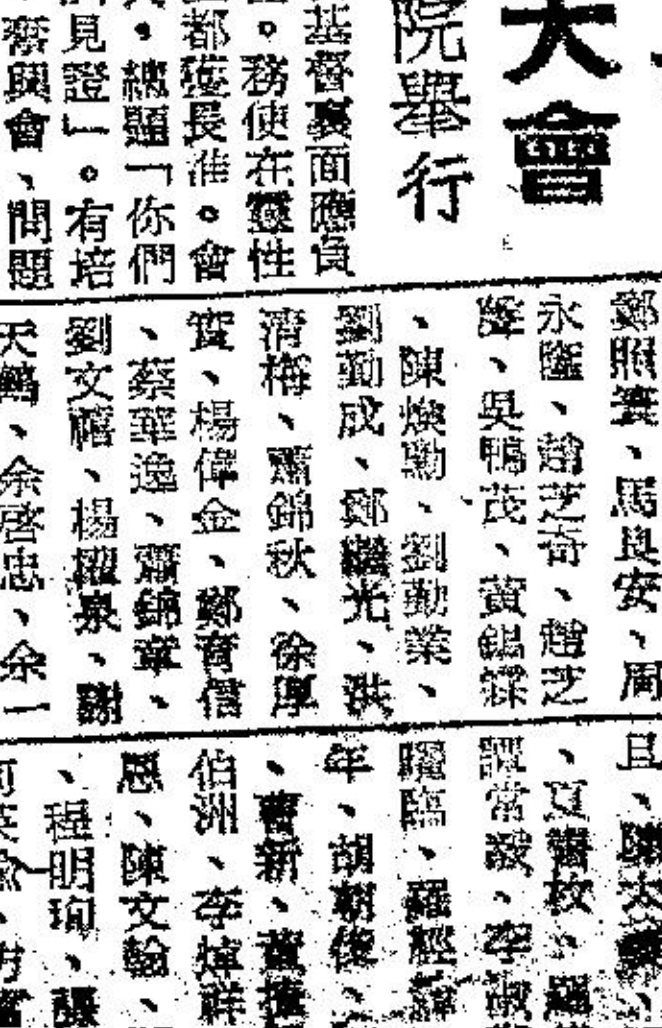 大會
院舉行
基督裏面應負
。務使在靈性
都獲長進。會
。總題「你們
見證」。有培
會、問題
鄭照、馬良安、周
永隆、趙芝奇、趙芝
、吳鴨茂、黃錫
、陳煥勛、劉勤業、
劉勤成、鄭繼光、洪
清梅、蕭錦秋、徐厚
實、楊偉金、鄭育信
、蔡華逸、蕭錦章、
劉文禧、楊耀泉、謝
天鶴、余啓忠、余一
且、陳太
、夏
譚常、李淑
臨、羅經
年、胡朝俊、
、曹新、董
伯洲、李焯祥
恩、陳文翰、
、程明珣、張